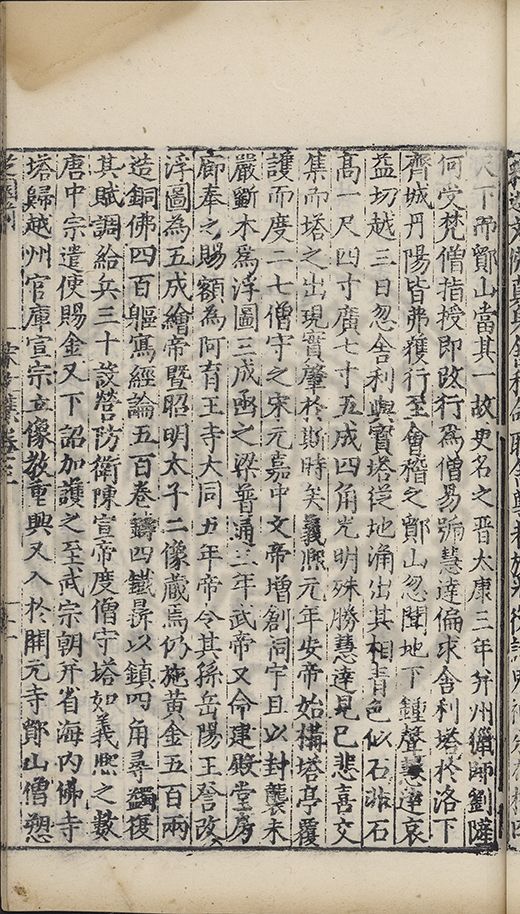 天下而鄮山當其一故史名之晋太康三年幷州獵師劉薩
何受梵僧指授即改行爲僧易號慧達徧求舍利塔扵洛下
齊城丹陽皆弗獲行至會稽之鄮山忽聞地下鍾聲慧達哀
益切越三日忽舍利與寳塔従地湧出其相青色似石非石
髙一尺四寸廣七寸五成四角光明殊勝慧達見已悲喜交
集而塔之出現實肇扵斯時矣義熈元年安帝始構塔亭覆
護而度二七僧守之宋元嘉中文帝増創洞宇且以封襲未
嚴斵木爲浮圖三成凾之梁普通三年武帝又命建殿堂房
廊奉之賜額為阿育王寺大同五年帝令其孫岳陽王詧改
浮圖為五成繪帝曁昭明太子二像蔵焉仍施黄金五百兩
造銅佛四百軀寫經論五百卷鑄四鐵鼎以鎮四角尋蠲復
其賦調給兵三十設營防衛陳宣帝度僧守塔如義熈之數
唐中宗遣使賜金又下詔加護之至武宗朝幷省海内佛寺
塔歸越州官庫宣宗立像教重興又入於開元寺鄮山僧愬